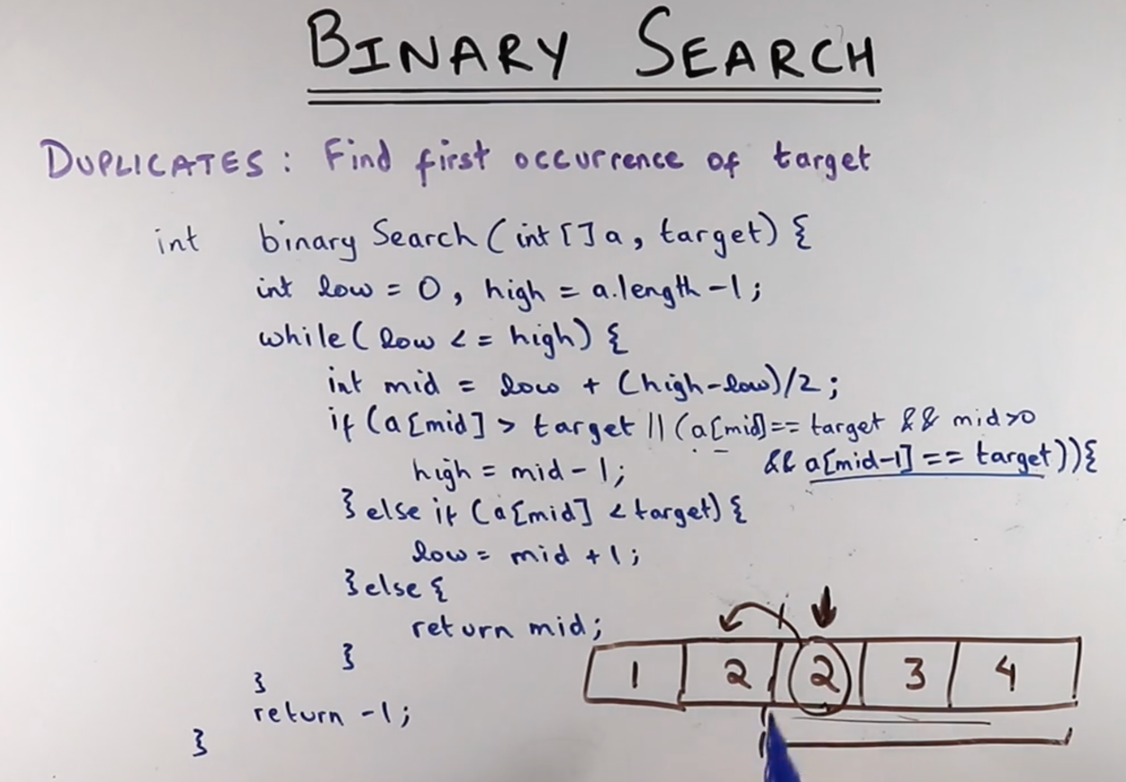 BINARY SEARCH
DUPLICATES: Find first occurrence of target
int binary Search (int [] a, target) {
int low = 0, high = a.length-1;
while( low <= high) {
int mid = low + (high-low)/2;
if (a[mid] > target || (a[mid]== target && mid>0
&& a[mid-1] == target)){
high = mid - 1;
} else if (a[mid] < target) {
low = mid + 1;
} else {
return mid;
}
}
return -1;
}
1 2 2 3 4